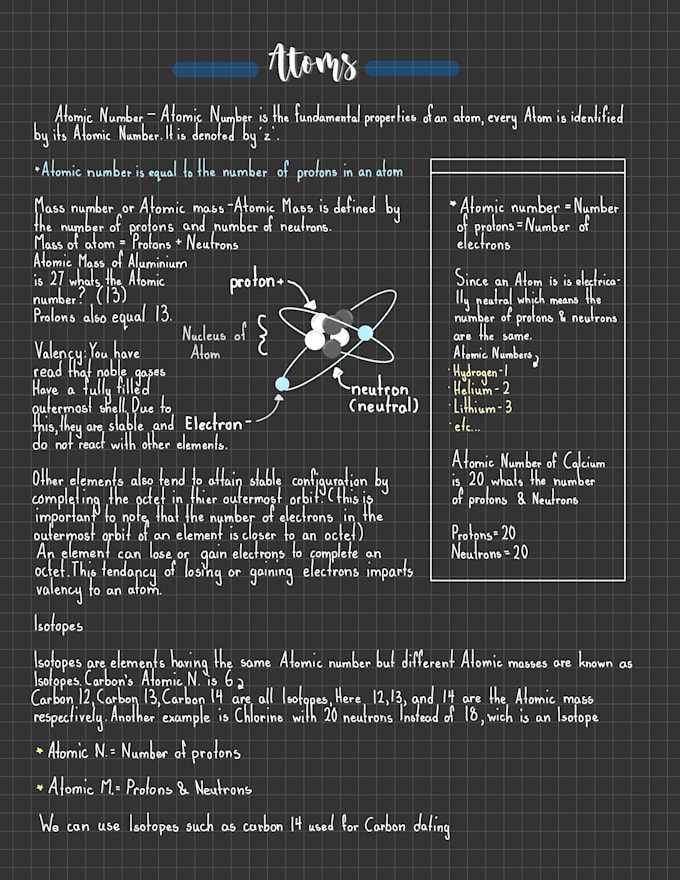 Atoms
Atomic Number - Atomic Number is the fundamental properties of an atom, every Atom is identified
by its Atomic Number. It is denoted by 'z'.
*Atomic number is equal to the number of protons in an atom
Mass number or Atomic mass - Atomic Mass is defined by
the number of protons and number of neutrons.
Mass of atom = Protons + Neutrons
Atomic Mass of Aluminium
is 27 whats the Atomic
number? (13)
Protons also equal 13.
Valency: You have
read that noble gases
Have a fully filled
outermost shell. Due to
this, they are stable and
do not react with other elements.
proton+
Nucleus of
Atom
Electron-
neutron
(neutral)
Other elements also tend to attain stable configuration by
completing the octet in thier outermost orbit. (this is
important to note, that the number of electrons in the
outermost orbit of an element is closer to an octet)
An element can lose or gain electrons to complete an
octet. This tendancy of losing or gaining electrons imparts
valency to an atom.
* Atomic number = Number
of protons = Number of
electrons
Since an Atom is is electrica-
lly neutral which means the
number of protons & neutrons
are the same.
Atomic Numbers
· Hydrogen-1
· Helium-2
· Lithium-3
· etc...
Atomic Number of Calcium
is 20, whats the number
of protons & Neutrons
Protons = 20
Neutrons = 20
Isotopes
Isotopes are elements having the same Atomic number but different Atomic masses are known as
Isotopes. Carbon's Atomic N. is 6
Carbon 12, Carbon 13, Carbon 14 are all Isotopes, Here 12, 13, and 14 are the Atomic mass
respectively. Another example is Chlorine with 20 neutrons Instead of 18, wich is an Isotope
* Atomic N. = Number of protons
* Atomic M. = Protons & Neutrons
We can use Isotopes such as carbon 14 used for Carbon dating